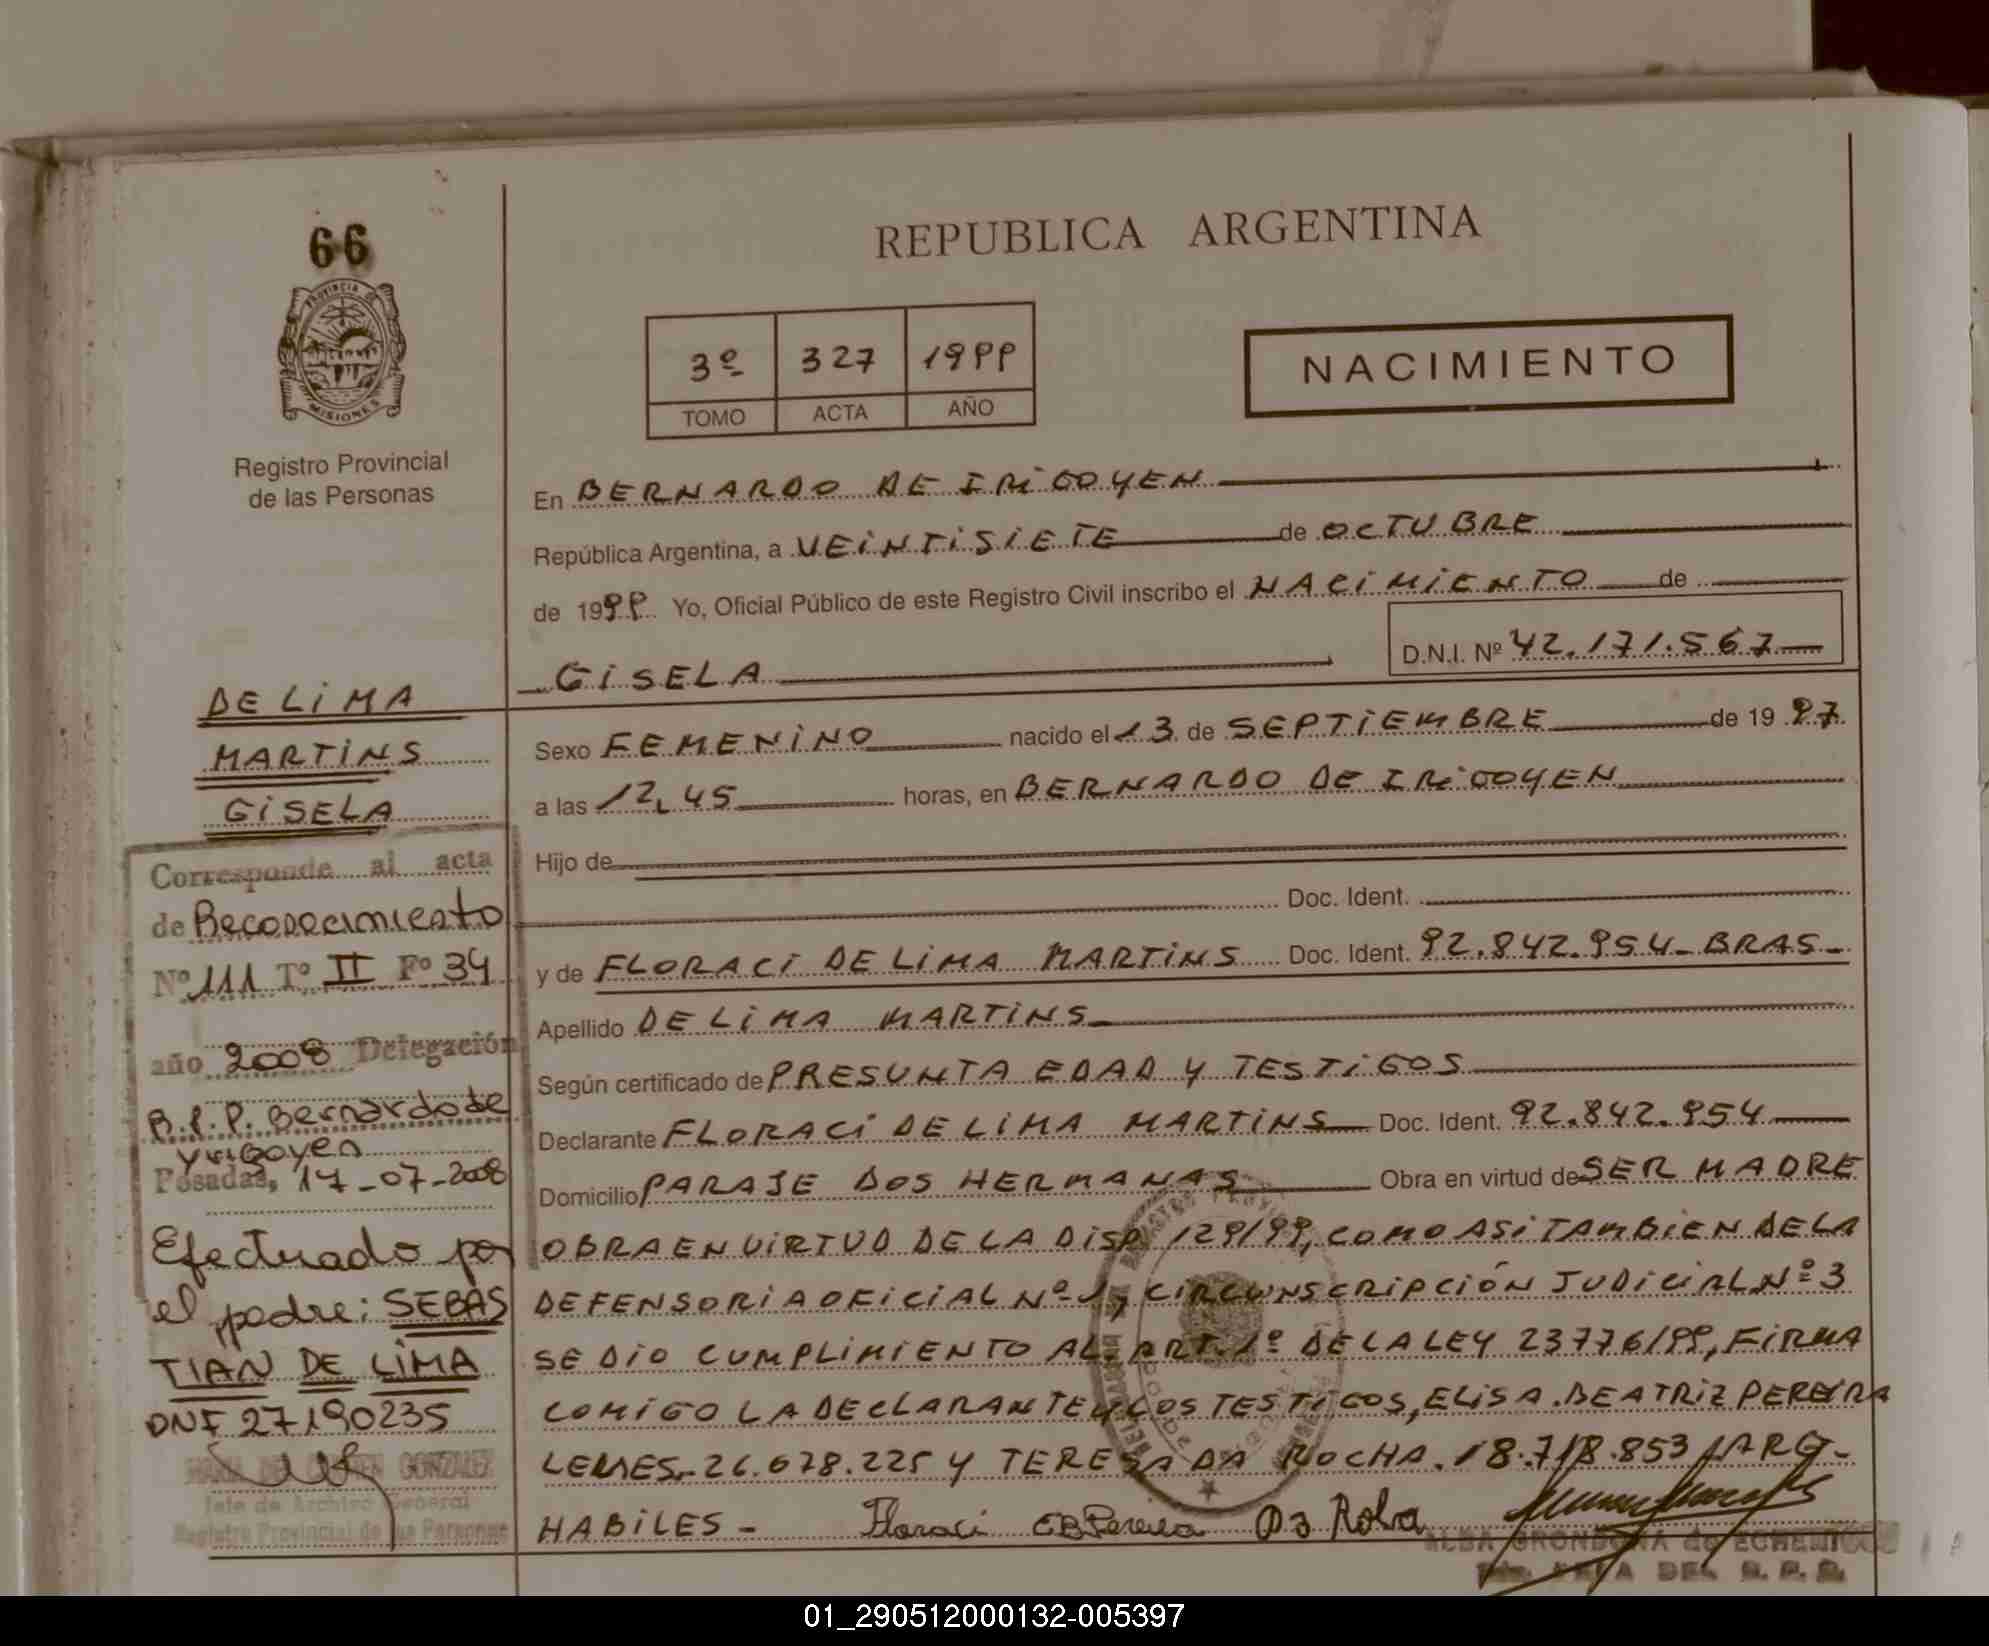 66
PROVINCIA DE
MISIONES
Registro Provincial
de las Personas
REPUBLICA ARGENTINA
3º 327 1999
TOMO ACTA AÑO
NACIMIENTO
En BERNARDO DE IRIGOYEN
República Argentina, a VEINTISIETE de OCTUBRE
de 1999 Yo, Oficial Público de este Registro Civil inscribo el NACIMIENTO de
GISELA
D.N.I. Nº 42.171.567
Sexo FEMENINO nacido el 13 de SEPTIEMBRE de 1997
a las 12,45 horas, en BERNARDO DE IRIGOYEN
Hijo de
Doc. Ident.
y de FLORACI DE LIMA MARTINS Doc. Ident. 92.842.954-BRAS-
Apellido DE LIMA MARTINS
Según certificado de PRESUNTA EDAD Y TESTIGOS
Declarante FLORACI DE LIMA MARTINS Doc. Ident. 92.842.954
Domicilio PARAJE DOS HERMANAS Obra en virtud de SER MADRE
OBRA EN VIRTUD DE LA DISP. 129/99, COMO ASI TAMBIEN DE LA
DEFENSORIA OFICIAL Nº 1, CIRCUNSCRIPCIÓN JUDICIAL Nº 3
SE DIO CUMPLIMIENTO AL ART. 1º DE LA LEY 23776/99, FIRMA
COMIGO LA DECLARANTE Y LOS TESTIGOS, ELISA BEATRIZ PEREIRA
LEMES-26.678.225 Y TERESA DA ROCHA. 18.718.853 ARG-
HABILES - Floraci EBPereira
DE LIMA
MARTINS
GISELA
Corresponde al acta
de Reconocimiento
Nº 111 Tº II Fº 34
año 2008 Delegación
R.P.P. Bernardo de
Yrigoyen
Posadas, 17-07-2008
Efectuado por
el padre: SEBAS
TIAN DE LIMA
DNI 27190235
MARIA DEL CARMEN GONZALEZ
Jefe de Archivo General
Registro Provincial de las Personas
ALBA GRONDONA de
DEL R. P. P.
01_290512000132-005397